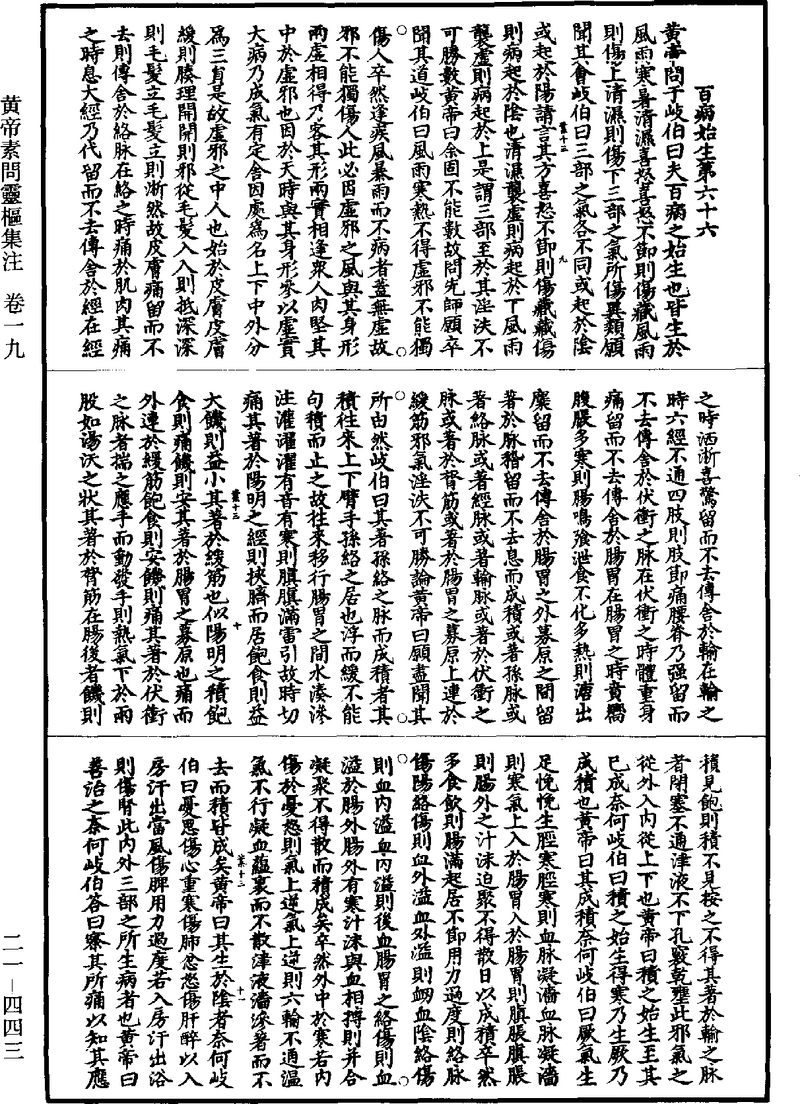 百病始生第六十六
黄帝問于岐伯曰夫百病之始生也皆生於
風雨寒暑清濕喜怒喜怒不節則傷藏風雨
則傷上清濕則傷下三部之氣所傷異類願
聞其會岐伯曰三部之氣各不同或起於陰
或起於陽請言其方喜怒不節則傷藏藏傷
則病起於陰也清濕襲虛則病起於下風雨
襲虛則病起於上是謂三部至於其淫泆不
可勝數黄帝曰余固不能數故問先師願卒
聞其道岐伯曰風雨寒熱不得虛邪不能獨
傷人卒然逢疾風暴雨而不病者蓋無虛故
邪不能獨傷人此必因虛邪之風與其身形
兩虛相得乃客其形兩實相逢衆人肉堅其
中於虛邪也因於天時與其身形參以虛實
大病乃成氣有定舍因處爲名上下中外分
爲三員是故虛邪之中人也始於皮膚皮膚
緩則腠理開開則邪從毛髮入入則抵深深
則毛髮立毛髮立則淅然故皮膚痛留而不
去則傳舍於絡脉在絡之時痛於肌肉其痛
之時息大經乃代留而不去傳舍於經在經
之時洒淅喜驚留而不去傳舍於輸在輸之
時六經不通四肢則肢節痛腰脊乃强留而
不去傳舍於伏衝之脉在伏衝之時體重身
痛留而不去傳舍於腸胃在腸胃之時賁嚮
腹脹多寒則腸鳴飱泄食不化多熱則溏出
麋留而不去傳舍於腸胃之外募原之間留
著於脉稽留而不去息而成積或著孫脉或
著絡脉或著經脉或著輸脉或著於伏衝之
脉或著於膂筋或著於腸胃之募原上連於
緩筋邪氣淫泆不可勝論黄帝曰願盡聞其
所由然岐伯曰其著孫絡之脉而成積者其
積往來上下臂手孫絡之居也浮而緩不能
句積而止之故往來移行腸胃之間水湊滲
注灌濯濯有音有寒則䐜䐜滿雷引故時切
痛其著於陽明之經則挾臍而居飽食則益
大饑則益小其著於緩筋也似陽明之積飽
食則痛饑則安其著於腸胃之募原也痛而
外連於緩筋飽食則安饑則痛其著於伏衝
之脉者揣之應手而動發手則熱氣下於兩
股如湯沃之狀其著於膂筋在腸後者饑則
積見飽則積不見按之不得其著於輸之脉
者閉塞不通津液不下孔竅乾壅此邪氣之
從外入内從上下也黄帝曰積之始生至其
已成奈何岐伯曰積之始生得寒乃生厥乃
成積也黄帝曰其成積奈何岐伯曰厥氣生
足悗悗生脛寒脛寒則血脉凝濇血脉凝濇
則寒氣上入於腸胃入於腸胃則䐜脹䐜脹
則腸外之汁沫迫聚不得散日以成積卒然
多食飲則腸滿起居不節用力過度則絡脉
傷陽絡傷則血外溢血外溢則衂血陰絡傷
則血内溢血内溢則後血腸胃之絡傷則血
溢於腸外腸外有寒汁沫與血相搏則并合
凝聚不得散而積成矣卒然外中於寒若内
傷於憂怒則氣上逆氣上逆則六輸不通温
氣不行凝血蘊裏而不散津液濇滲著而不
去而積皆成矣黄帝曰其生於陰者奈何岐
伯曰憂思傷心重寒傷肺忿怒傷肝醉以入
房汗出當風傷脾用力過度若入房汗出浴
則傷腎此内外三部之所生病者也黄帝曰
善治之奈何岐伯答曰察其所痛以知其應
九
十
十一
業十三
業十三
業十三
黄帝素問靈樞集注 卷一九
二一－四四三